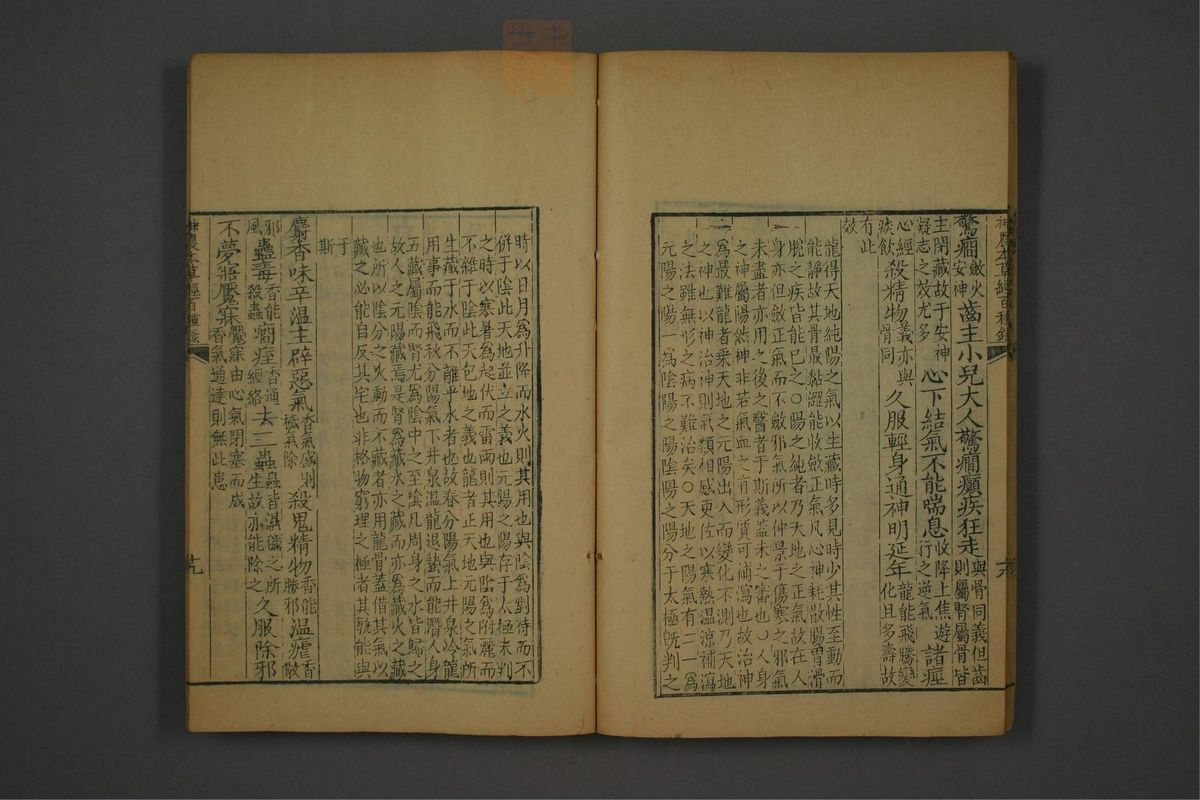 神農本草經百種錄
驚癎斂火安神齒主小兒大人驚癎癲疾狂走與骨同義但齒則屬腎屬骨皆
主閉藏故于安神凝志之效尤多心下結氣不能喘息收降上焦遊行之逆氣諸痙
心經痰飲殺精物義亦與骨同久服輕身通神明延年龍能飛騰變化且多壽故
有此效
龍得天地純陽之氣以生藏時多見時少其性至動而
能靜故其骨最黏澀能收斂正氣凡心神耗散腸胃滑
脫之疾皆能已之○陽之純者乃天地之正氣故在人
身亦但斂正氣而不斂邪氣所以仲景于傷寒之邪氣
未盡者亦用之後之醫者于斯義蓋未之審也○人身
之神屬陽然神非若氣血之有形質可補瀉也故治神
爲最難龍者乗天地之元陽出入而變化不測乃天地
之神也以神治神則氣類相感更佐以寒熱温涼補瀉
之法雖無形之病不難治矣○天地之陽氣有二一爲
元陽之陽一爲陰陽之陽陰陽之陽分于太極旣判之
時以日月爲升降而水火則其用也與陰爲對待而不
併于陰此天地並立之義也元陽之陽存于太極未判
之時以寒暑爲起伏而雷雨則其用也與陰爲附麗而
不雜于陰此天包地之義也龍者正天地元陽之氣所
生藏于水而不離乎水者也故春分陽氣上井泉冷龍
用事而能飛秋分陽氣下井泉温龍退蟄而能潛人身
五藏屬陰而腎尤爲陰中之至陰凡周身之水皆歸之
故人之元陽藏焉是腎爲藏水之藏而亦爲藏火之藏
也所以陰分之火動而不藏者亦用龍骨蓋借其氣以
藏之必能自反其宅也非格物窮理之極者其孰能與
于斯
麝香味辛温主辟惡氣香氣盛則穢氣除殺鬼精物香能勝邪温瘧香散
邪風蠱毒香能殺蟲癎痙香通經絡去三蟲蟲皆濕穢之所生故亦能除之久服除邪
不夢寤魘寐魘寐由心氣閉塞而成香氣通達則無此患
神農本草經百種錄
九